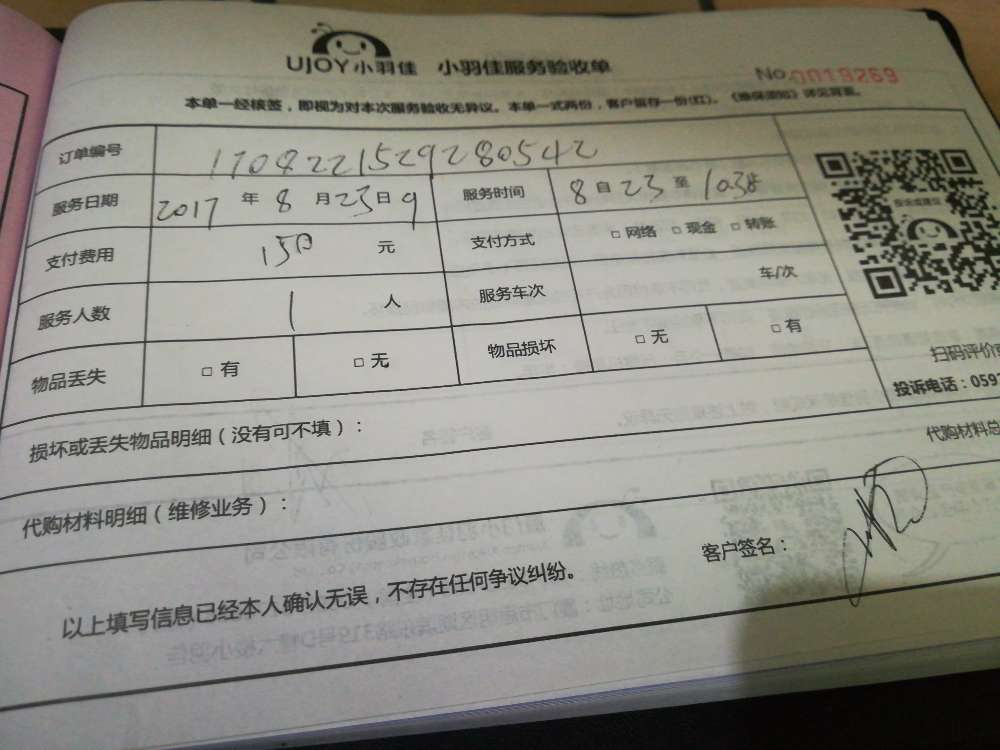 UJOY小羽佳 小羽佳服务验收单
No.0019269
本单一经核签,即视为对本次服务验收无异议。本单一式两份,客户留存一份(红)。《维保须知》详见背面。
订单编号 1708221529280542
服务日期 2017 年 8 月 23 日 9 服务时间 8 自 23 至 1038
支付费用 150 元 支付方式 □ 网络 □ 现金 □ 转账
服务人数 1 人 服务车次 车/次
物品丢失 □ 有 □ 无 物品损坏 □ 无 □ 有
投诉或建议
扫码评价
投诉电话:059
损坏或丢失物品明细(没有可不填):
代购材料明细(维修业务): 代购材料总
以上填写信息已经本人确认无误,不存在任何争议纠纷。 客户签名: